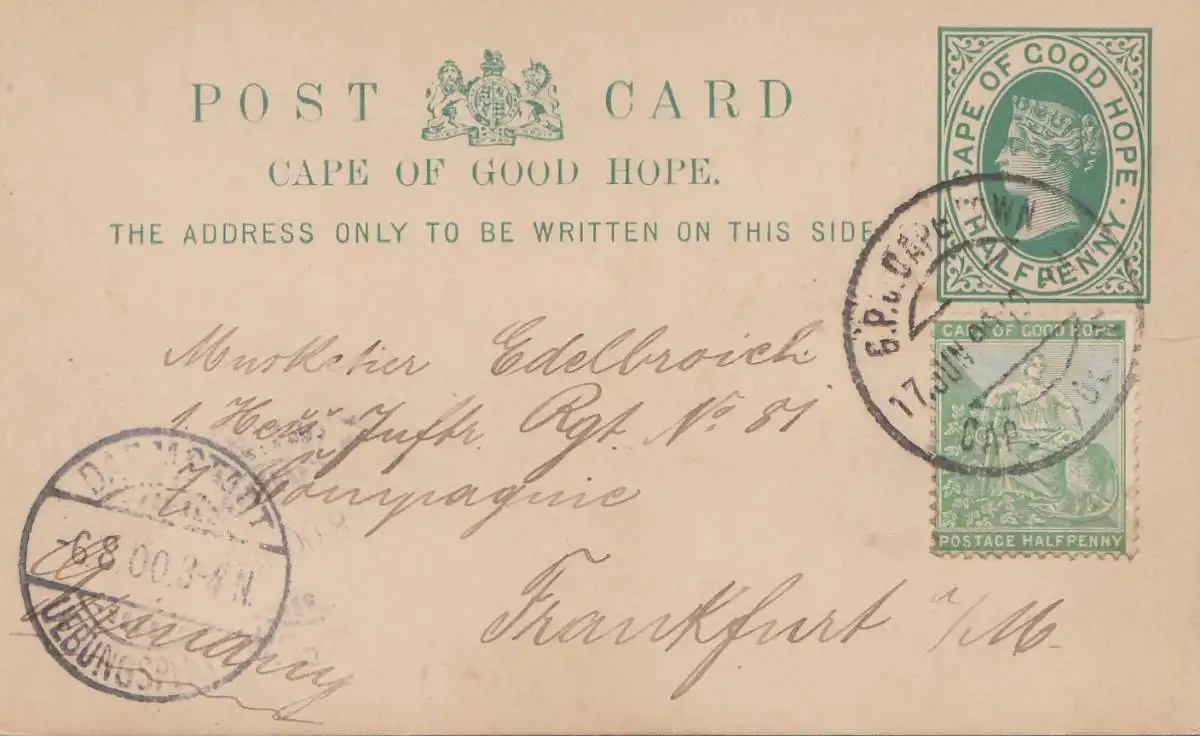 POST CARD
CAPE OF GOOD HOPE.
THE ADDRESS ONLY TO BE WRITTEN ON THIS SIDE
CAPE OF GOOD HOPE · HALFPENNY ·
G.P.O. CAPE TOWN
17. JUN
CAPE OF GOOD HOPE
POSTAGE HALFPENNY
Musketier Edelbroich
1. Hess. Inftr. Rgt. No 81
7. Compagnie
Frankfurt a/M.
Germany
DARMSTADT
-6.8.00.3-4 N.
UEBUNGSPL